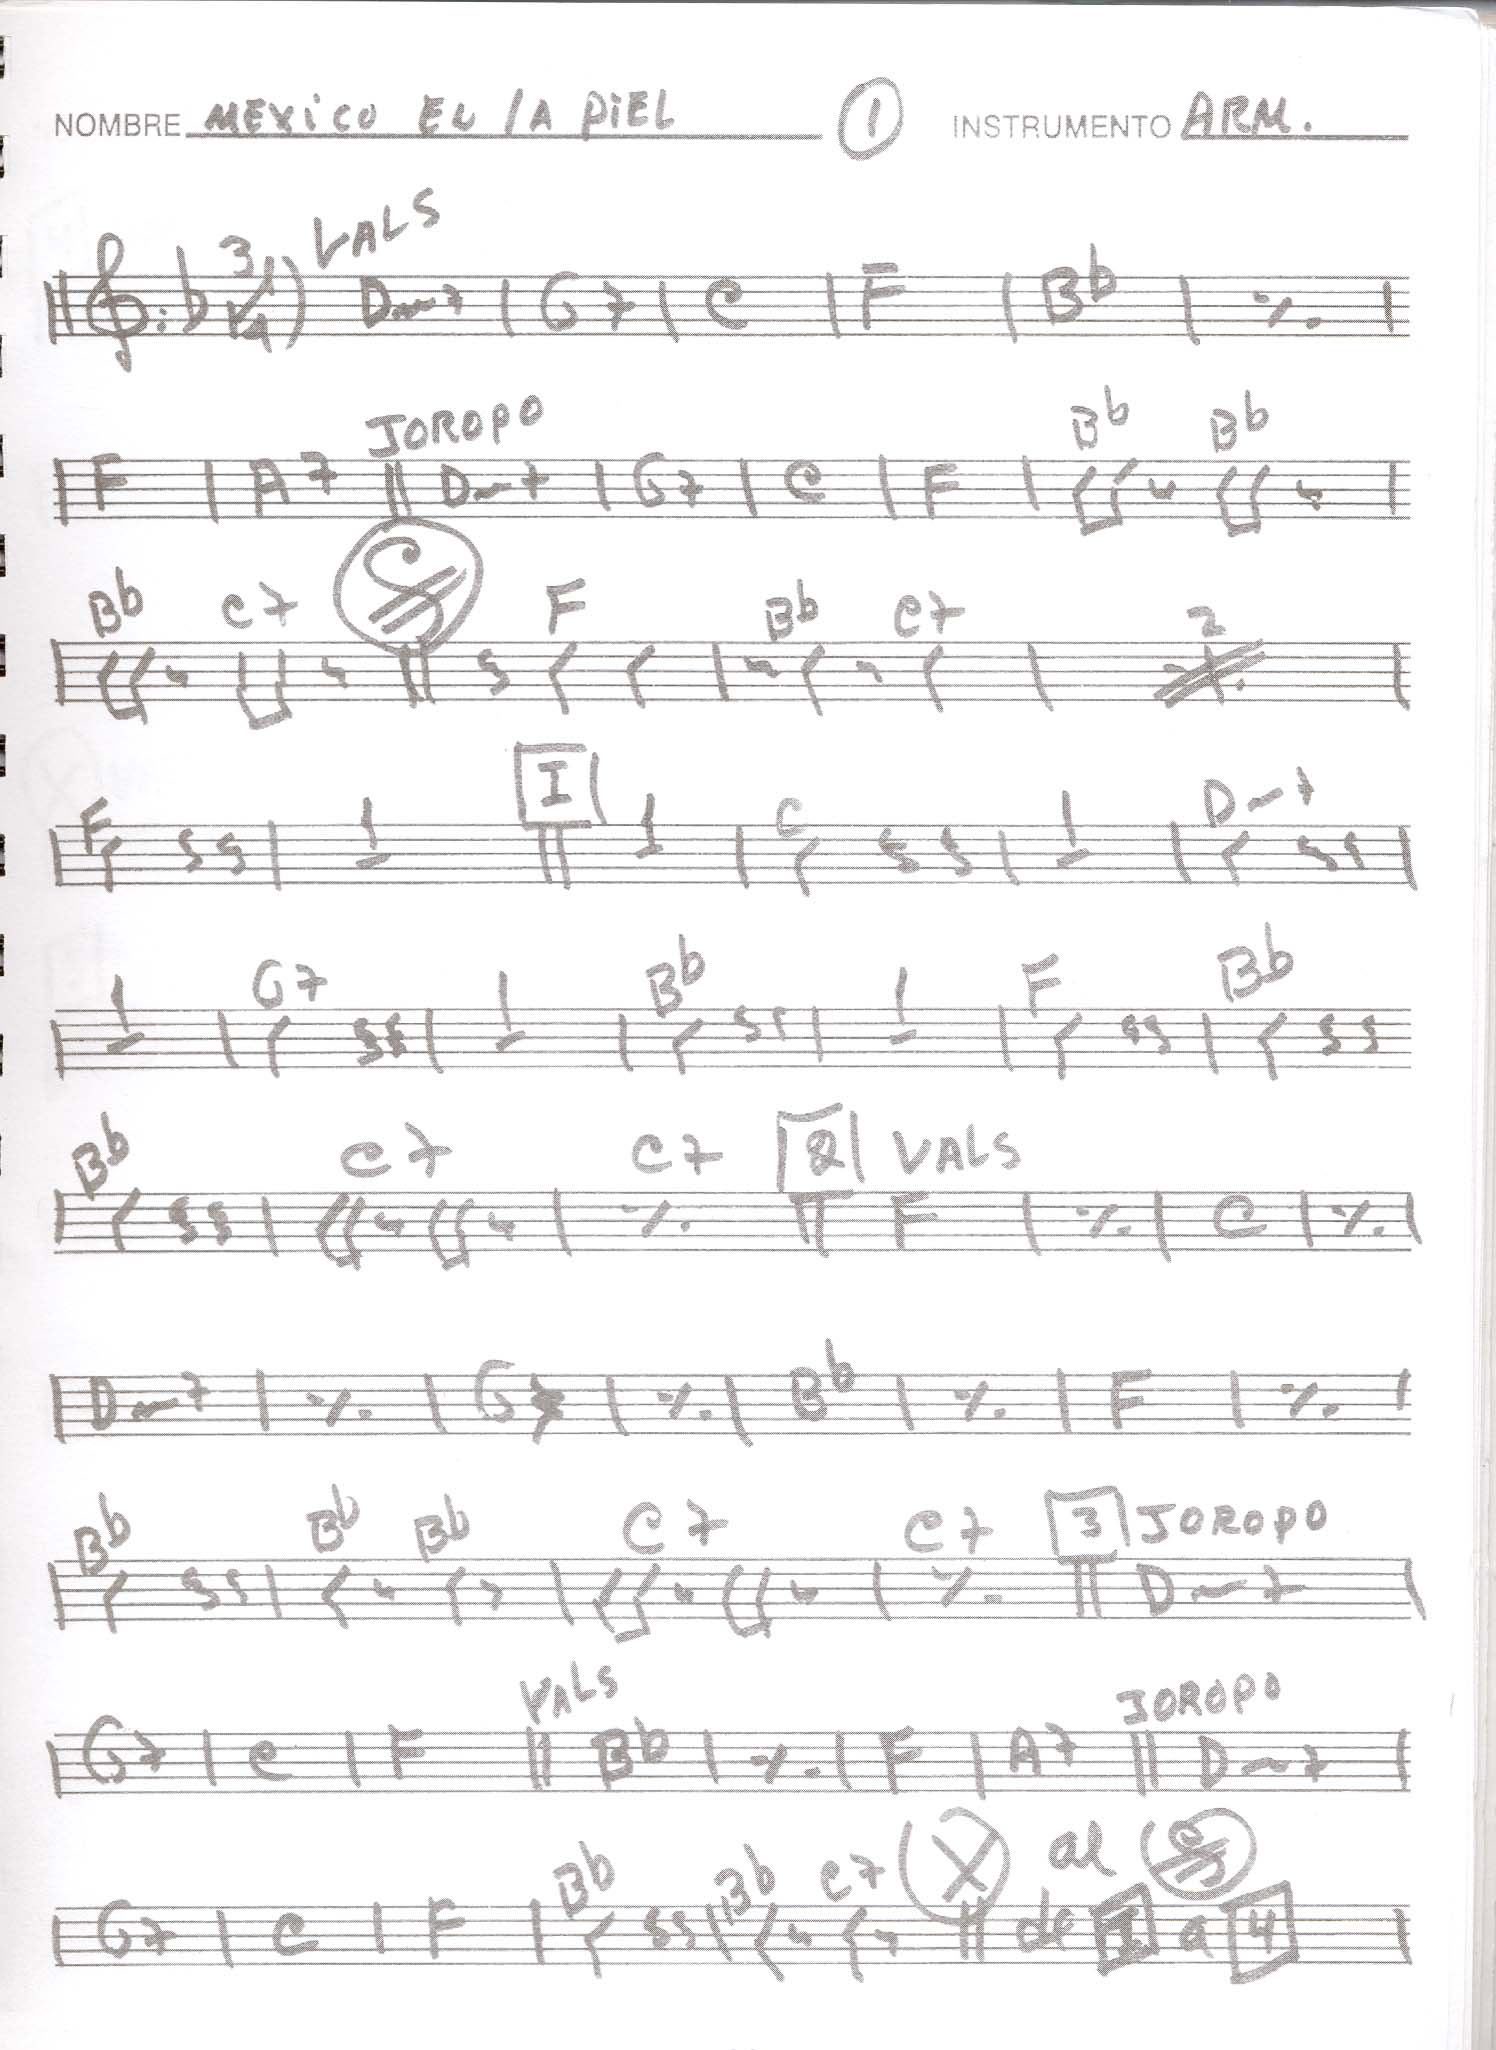 NOMBRE MEXiCO EN lA PiEL 1 INSTRUMENTO ARM.
VALS
b 3/4 Dm7 | G7 | C | F | Bb | ٪ |
JOROPO Bb Bb
F | A7 || Dm7 | G7 | C | F |
Bb C7 F Bb C7 2
F I C Dm7
1 1 1 1
G7 Bb F Bb
1 1 1
Bb C7 C7 2 VALS
F | ٪ | C | ٪ |
Dm7 | ٪ | G7 | ٪ | Bb | ٪ | F | ٪ |
Bb Bb Bb C7 C7 3 JOROPO
Dm7
VALS JOROPO
G7 | C | F || Bb | ٪ | F | A7 || Dm7 |
Bb Bb C7 X al
G7 | C | F | de I a 4